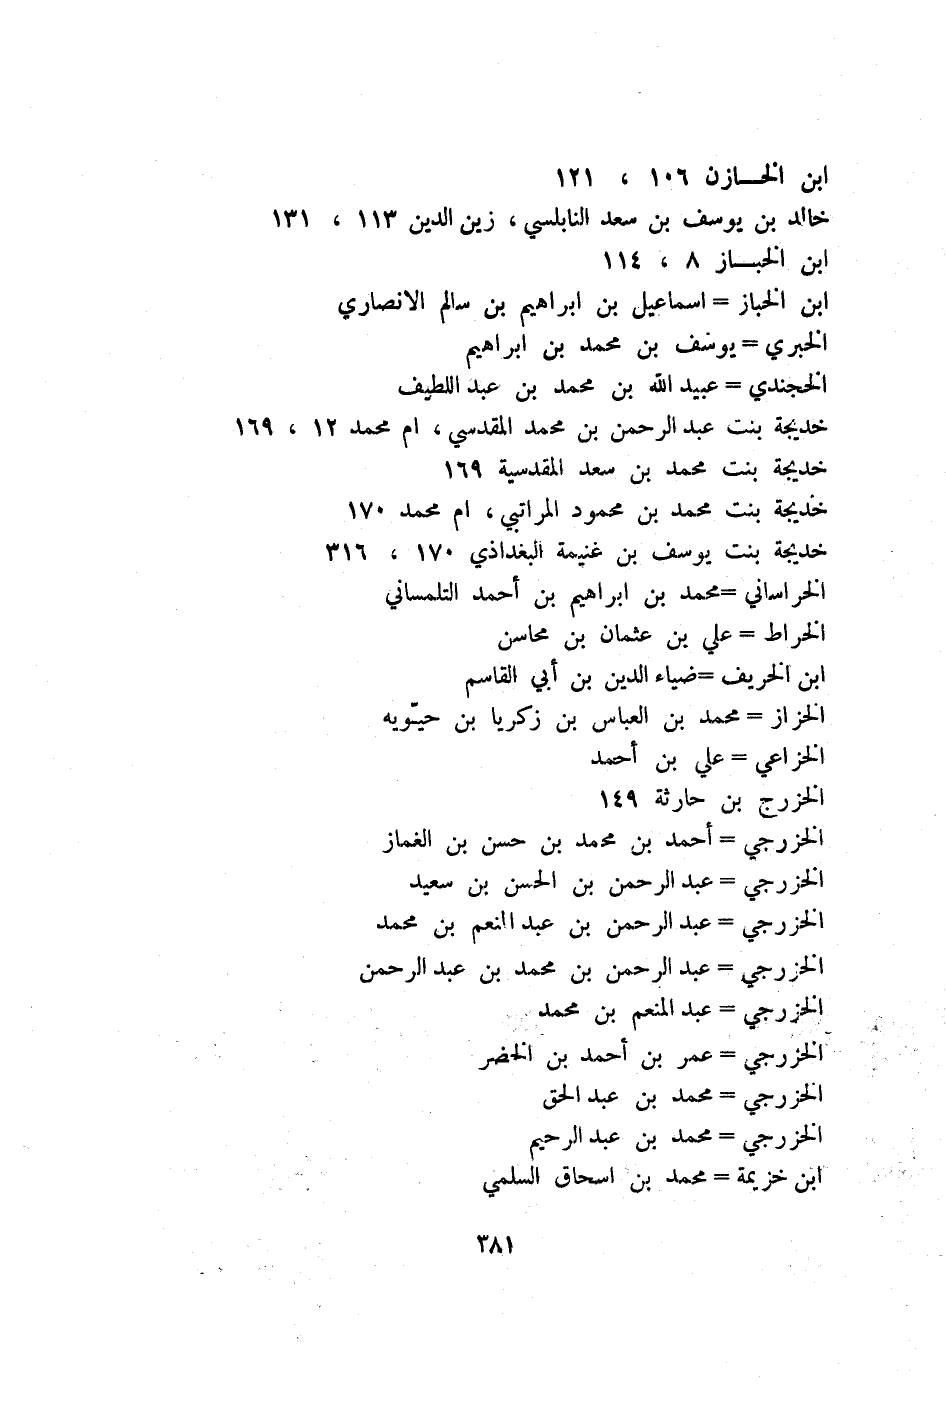 ابن الخـــازن ١٠٦ ، ١٢١
خالد بن يوسف بن سعد النابلسي ، زين الدين ١١٣ ، ١٣١
ابن الخبـــاز ٨ ، ١١٤
ابن الخباز = اسماعيل بن ابراهيم بن سالم الانصاري
الخبري = يوسف بن محمد بن ابراهيم
الخجندي = عبيد الله بن محمد بن عبد اللطيف
خديجة بنت عبد الرحمن بن محمد المقدسي ، ام محمد ١٢ ، ١٦٩
خديجة بنت محمد بن سعد المقدسية ١٦٩
خديجة بنت محمد بن محمود المراتبي ، ام محمد ١٧٠
خديجة بنت يوسف بن غنيمة البغداذي ١٧٠ ، ٣١٦
الخراساني = محمد بن ابراهيم بن أحمد التلمساني
الخراط = علي بن عثمان بن محاسن
ابن الخريف = ضياء الدين بن أبي القاسم
الخزاز = محمد بن العباس بن زكريا بن حيّويه
الخزاعي = علي بن أحمد
الخزرج بن حارثة ١٤٩
الخزرجي = أحمد بن محمد بن حسن بن الغماز
الخزرجي = عبد الرحمن بن الحسن بن سعيد
الخزرجي = عبد الرحمن بن عبد المنعم بن محمد
الخزرجي = عبد الرحمن بن محمد بن عبد الرحمن
الخزرجي = عبد المنعم بن محمد
الخزرجي = عمر بن أحمد بن الخضر
الخزرجي = محمد بن عبد الحق
الخزرجي = محمد بن عبد الرحيم
ابن خزيمة = محمد بن اسحاق السلمي
٣٨١